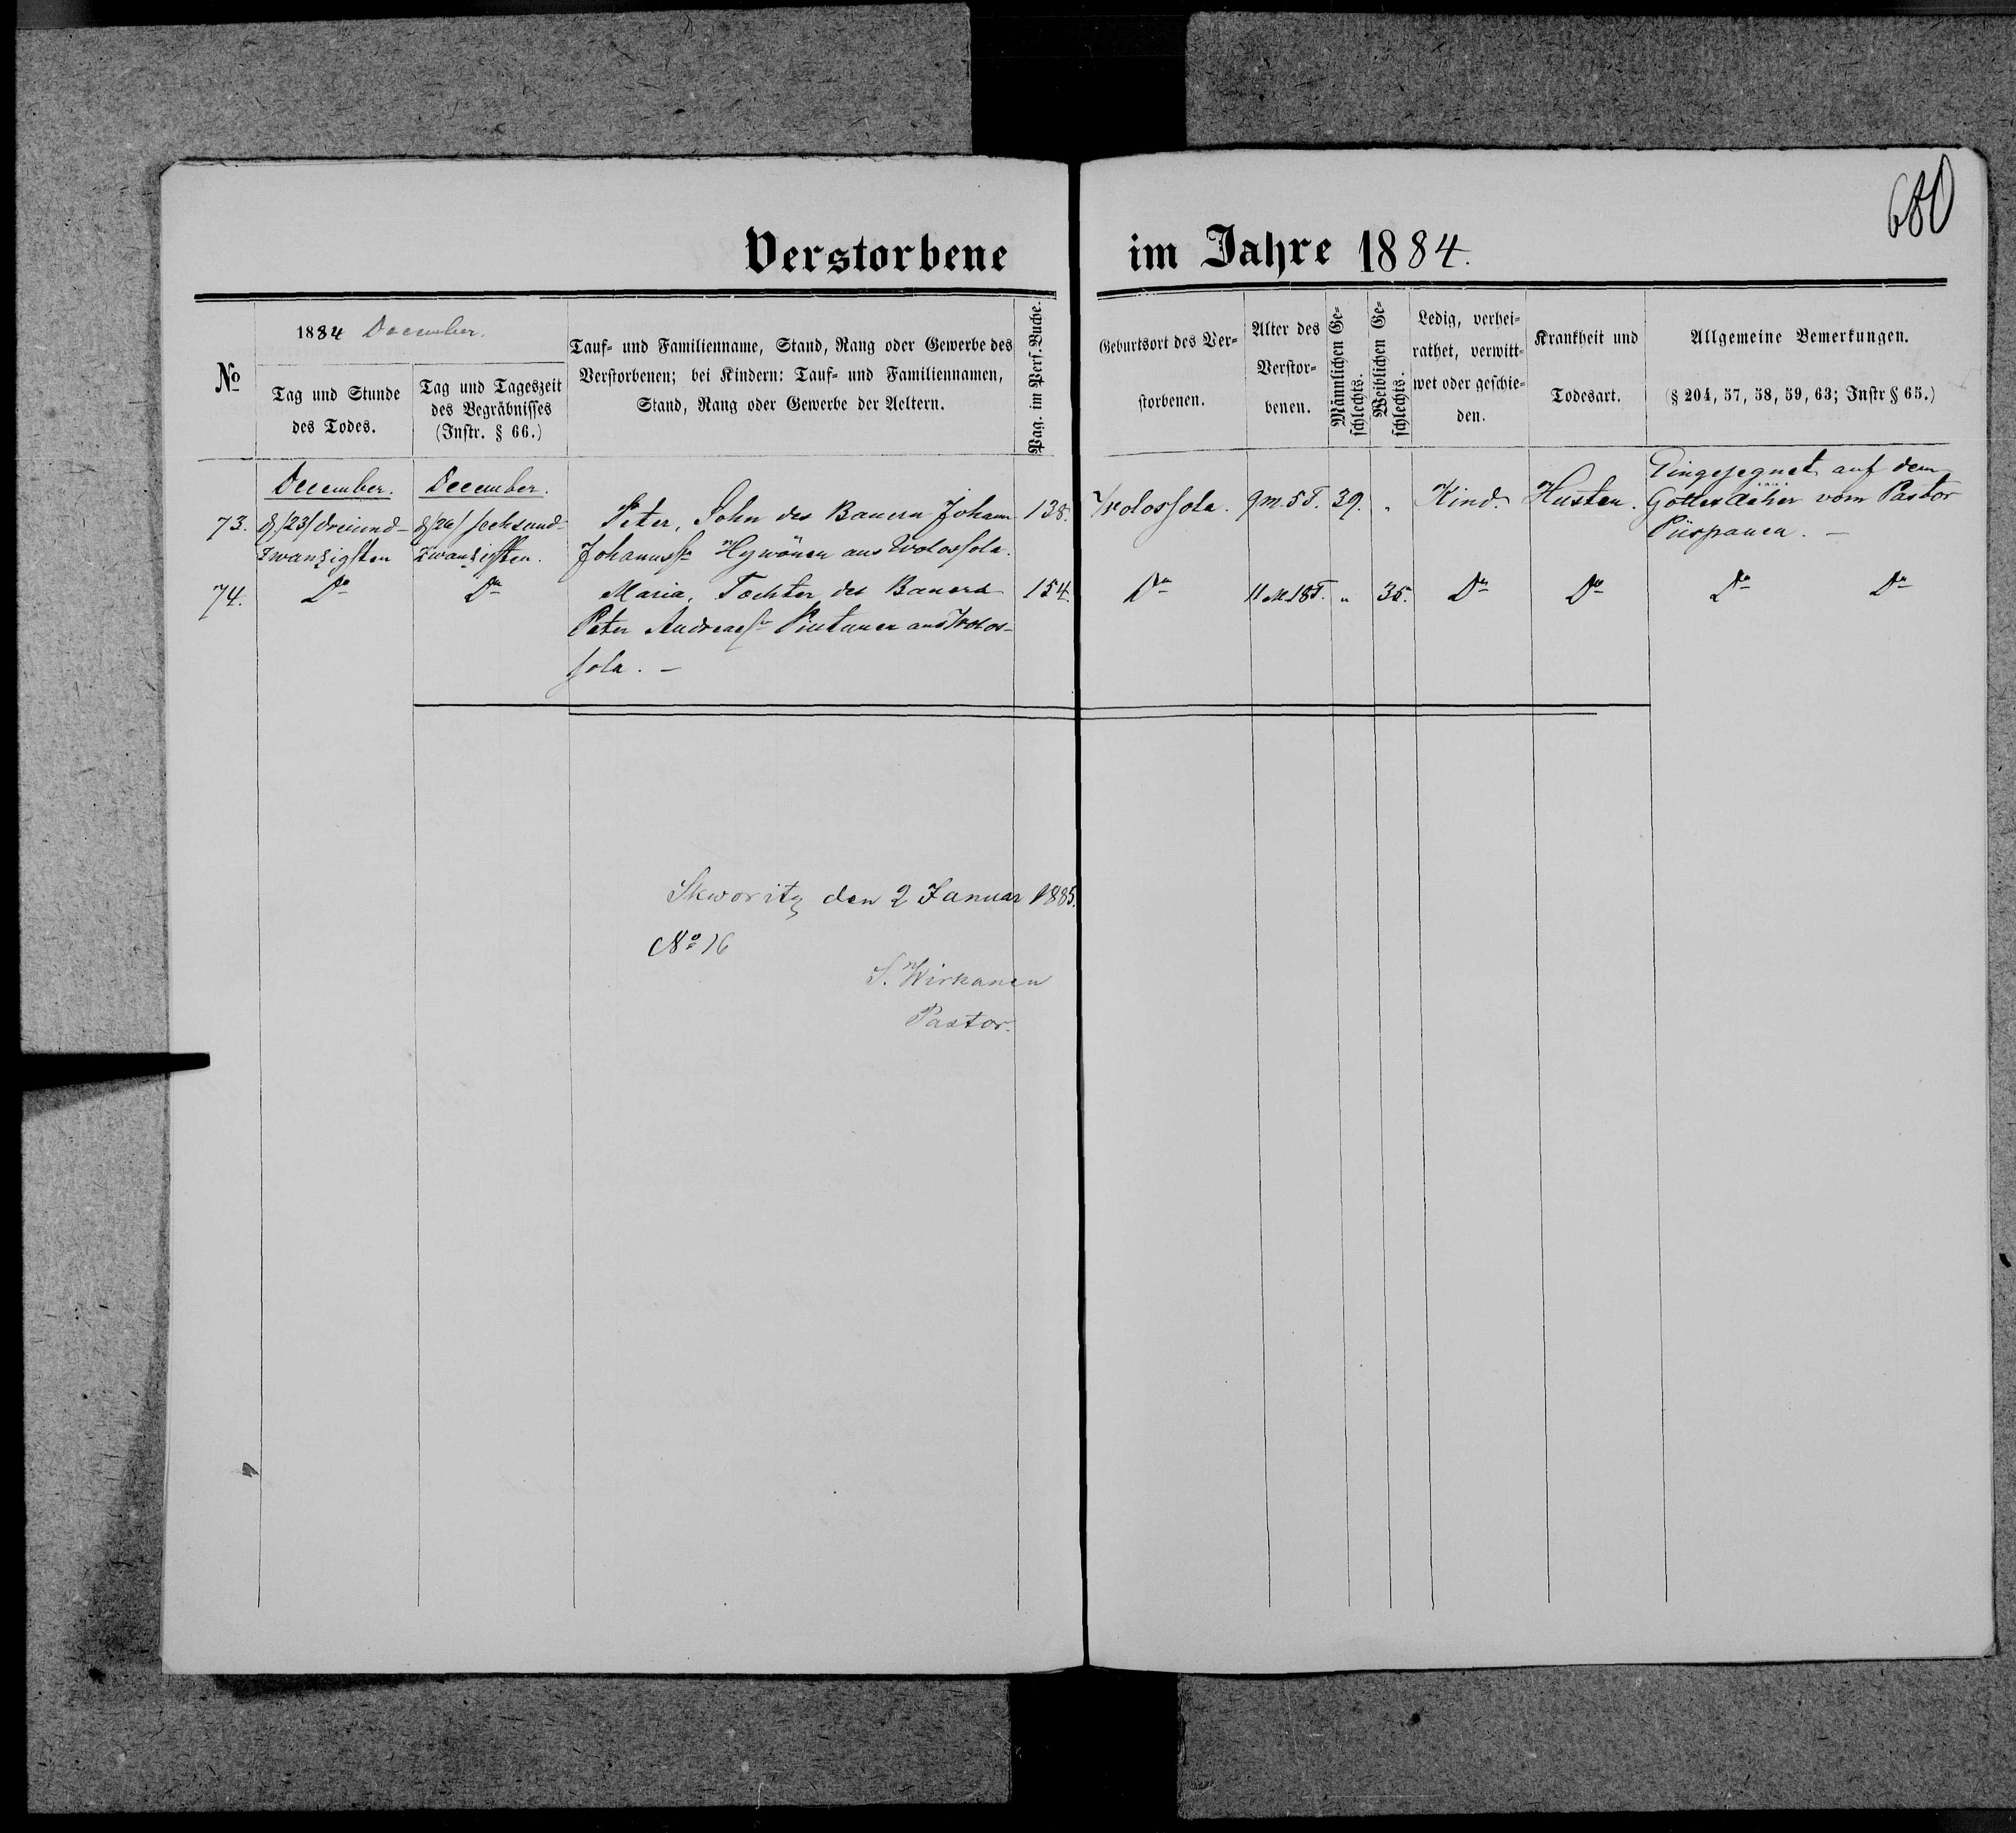 680
Verstorbene im Jahre 1884.
№
1884 December.
Tag und Stunde
des Todes.
Tag und Tageszeit
des Begräbnisses
(Instr. § 66.)
Tauf- und Familienname, Stand, Rang oder Gewerbe des
Verstorbenen; bei Kindern: Tauf- und Familiennamen,
Stand, Rang oder Gewerbe der Aeltern.
Pag. im Pers. Buche.
Geburtsort des Ver-
storbenen.
Alter des
Verstor-
benen.
Männlichen Ge-
schlechts.
Weiblichen Ge-
schlechts.
Ledig, verhei-
rathet, verwitt-
wet oder geschie-
den.
Krankheit und
Todesart.
Allgemeine Bemerkungen.
(§ 204, 57, 58, 59, 63; Instr § 65.)
December.
December.
73.
d/23/ dreiund-
zwanzigsten
d/26/ sechsund-
zwanzigsten.
Peter, Sohn des Bauern Johann
Johannss Hywönen aus Wolossola.
138.
Wolossola.
9M. 5T.
39.
"
Kind.
Husten.
Eingesegnet auf dem
Gottesacker vom Pastor
Püspanen. —
74.
Do
Do
Maria, Tochter des Bauers
Peter Andreass Piutunen aus Wolos-
sola. —
154.
Do
11 M 18T.
"
35.
Do
Do
Do Do
Skworitz den 2 Januar 1885.
No 16
S. Wirkanen
Pastor.